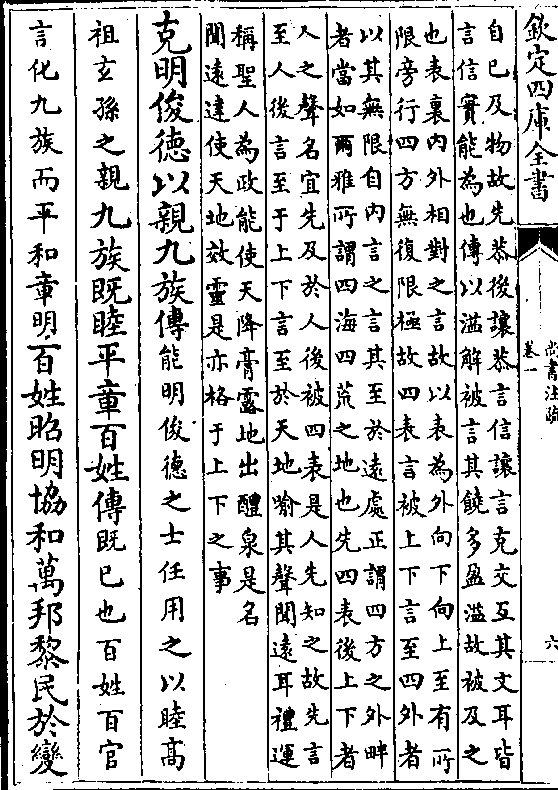 欽定四庫全書
尚書注疏
卷一
六
自已及物故先恭後讓恭言信讓言克交互其文耳皆
言信實能為也傳以溢解被言其饒多盈溢故被及之
也表裏內外相對之言故以表為外向下向上至有所
限旁行四方無復限極故四表言被上下言至四外者
以其無限自內言之言其至於遠處正謂四方之外畔
者當如爾雅所謂四海四荒之地也先四表後上下者
人之聲名宜先及於人後被四表是人先知之故先言
至人後言至于上下言至於天地喻其聲聞遠耳禮運
稱聖人為政能使天降膏露地出醴泉是名
聞遠達使天地效靈是亦格于上下之事
克明俊德以親九族傳能明俊德之士任用之以睦高
祖玄孫之親九族既睦平章百姓傳既已也百姓百官
言化九族而平和章明百姓昭明協和萬邦黎民於變